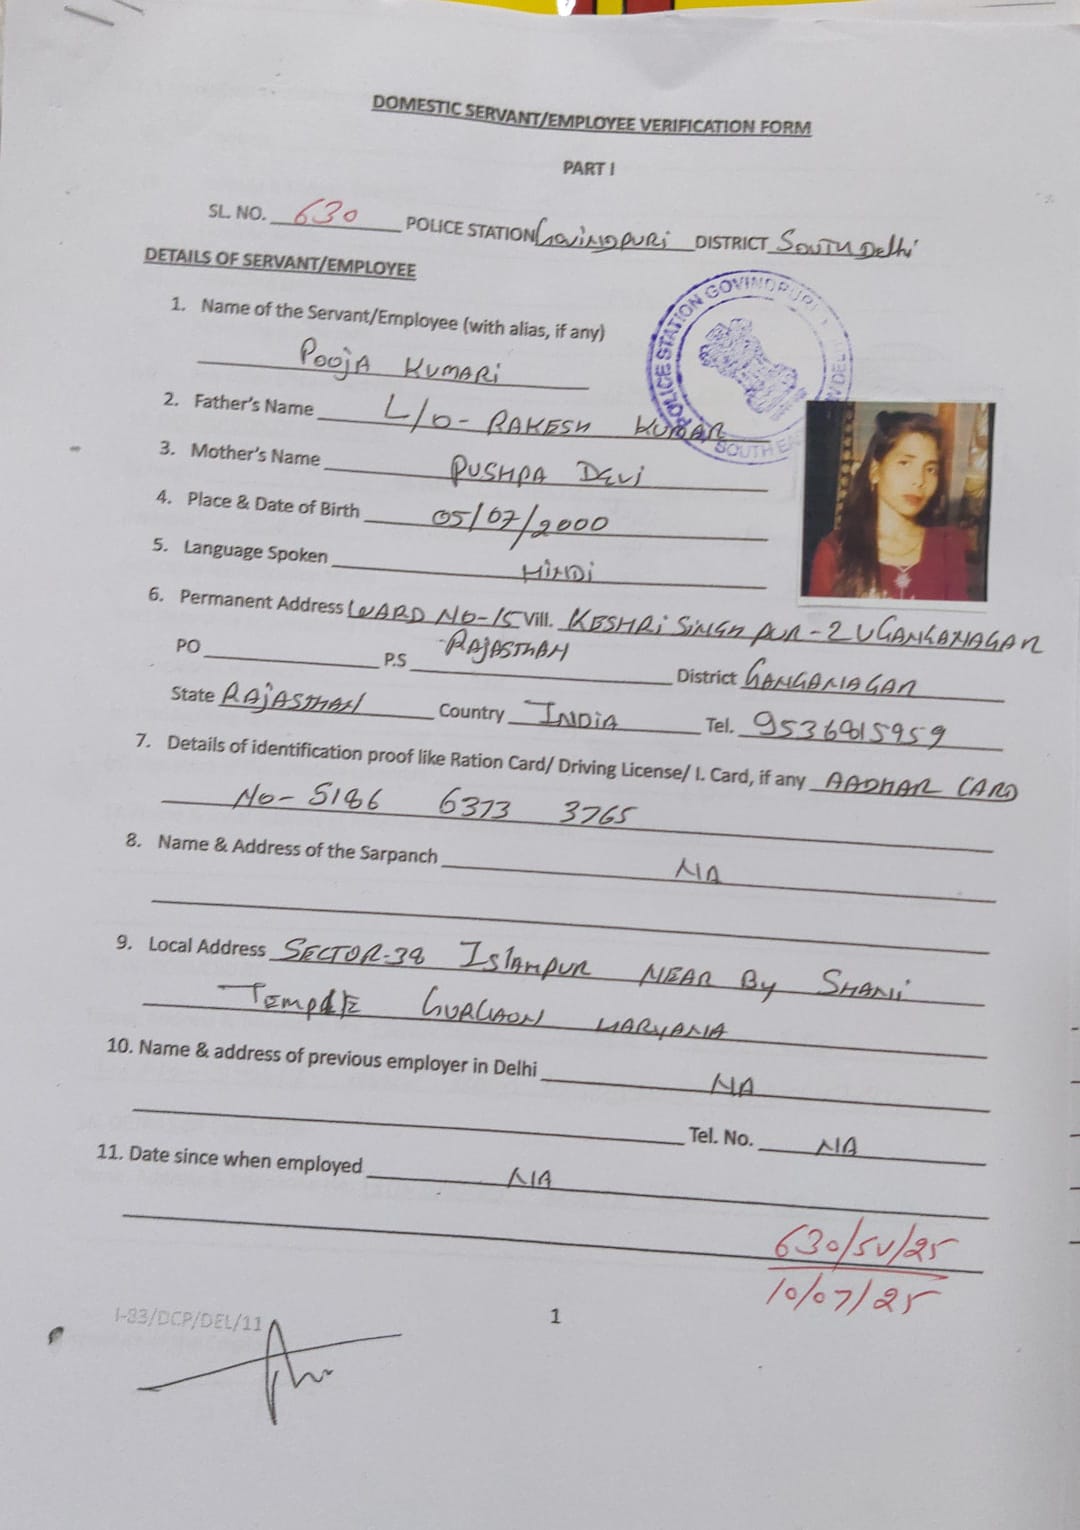 DOMESTIC SERVANT/EMPLOYEE VERIFICATION FORM
PART I
SL. NO. 630 POLICE STATION GOVINDPURI DISTRICT SOUTH Delhi
DETAILS OF SERVANT/EMPLOYEE
POLICE STATION GOVINDPURI
SOUTH EA
1. Name of the Servant/Employee (with alias, if any)
POOJA KUMARI
2. Father's Name L/O- RAKESH KUMAR
3. Mother's Name PUSHPA DEVI
4. Place & Date of Birth 05/07/2000
5. Language Spoken HINDI
6. Permanent Address WARD NO-15 Vill. KESHRI SINGH PUR-2 V GANGANAGAR
RAJASTHAN
PO P.S District GANGANAGAR
State RAJASTHAN Country INDIA Tel. 9536815959
7. Details of identification proof like Ration Card/ Driving License/ I. Card, if any AADHAR CARD
No- 5186 6373 3765
8. Name & Address of the Sarpanch NA
9. Local Address SECTOR-38 ISLAMPUR NEAR By SHANI
TEMPLE GURGAON HARYANA
10. Name & address of previous employer in Delhi NA
Tel. No. NA
11. Date since when employed NA
630/SV/25
10/07/25
I-83/DCP/DEL/11
1